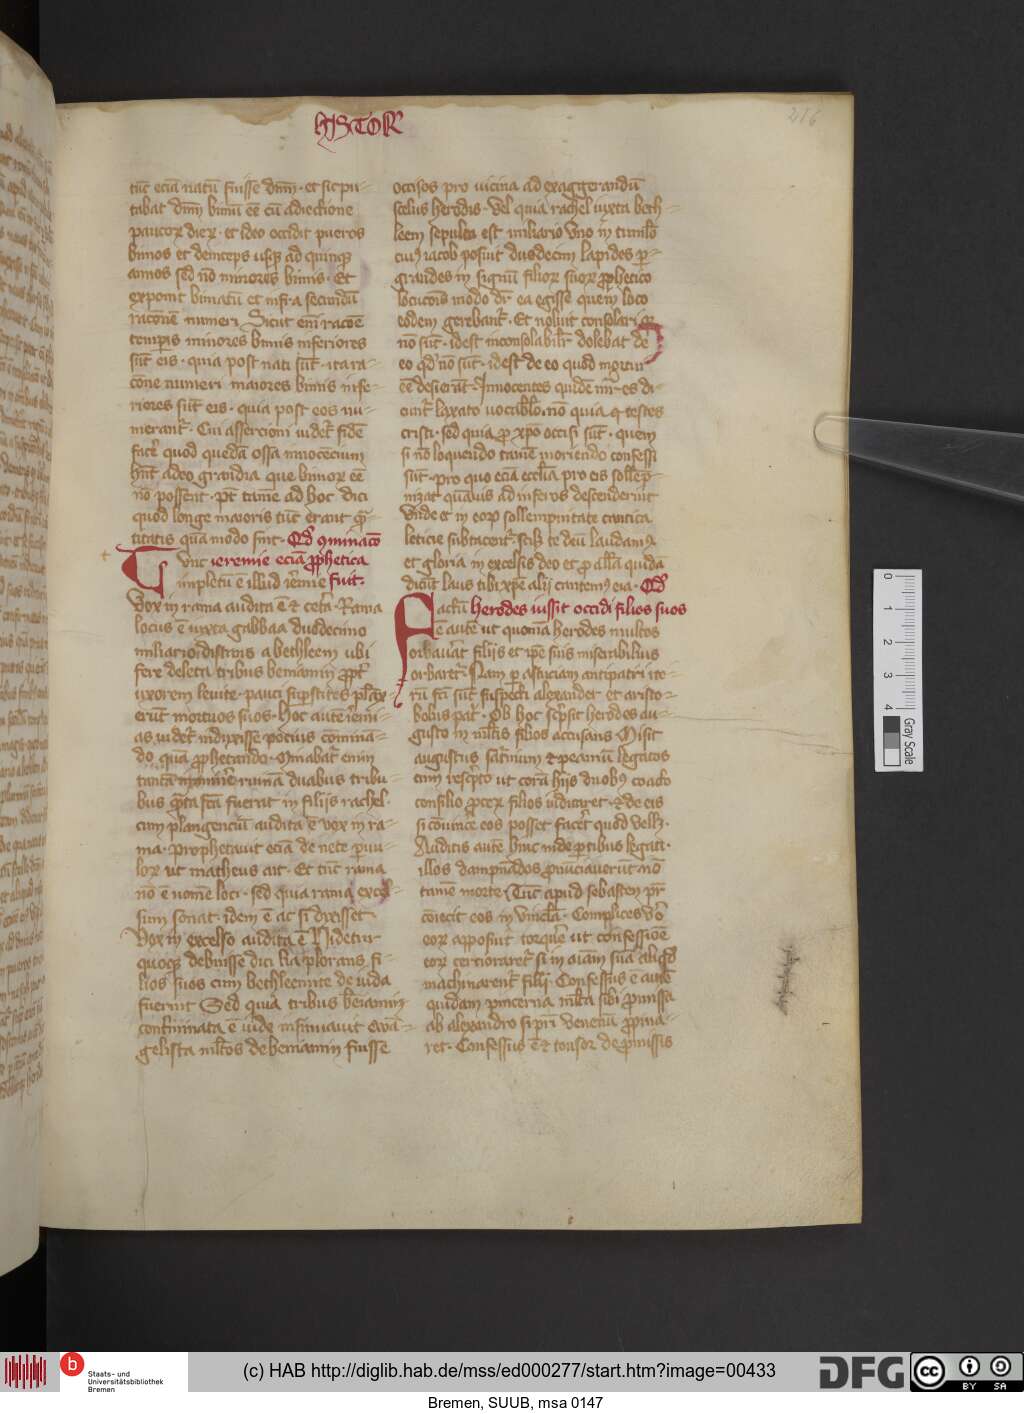 HISTOR
216
tūc eciā natū fuisse dnm · et sic pu-
tabat dnm bimū eē cū adiectione
paucoꝝ dieꝝ · et ideo occidit pueros
bimos et deinceps usꝗ ad quinꝗ
annos sed nō minores bimis · Et
exponit bimatū et infra secundū
racōnē numeri Sicut eni racōe
temporis minores bimis inferiores
sūt eis · quia post nati sūt · ita ra-
cōne numeri maiores bimis infe-
riores sūt eis · quia post eos nu-
merant̄ · Cui assercioni videt̄ fidē
facē quod quedā ossa innocēcium
hn̄t adeo grandia que bimoꝝ eē
nō possent · pt̄ tamē ad hoc dici
quod longe maioris tūc erant qᷓ-
titatis quā modo sint · Qd̄ ꝯminacō
Tunc ieremie eciā ꝓphetica
impletū ē illud iēmie fuit ·
Vox in rama audita ē & cetā · Rama
locus ē iuxta gabbaa duodecimo
miliario distans a bethleem ubi
fere deleta tribus beniamin ꝓpt̄
uxorem leuite · pauci suꝑstites plāx-
erūt mortuos suos · hoc autē iēmi-
as videt̄ induxisse pocius cōmina-
do quā ꝓphetando · Minabat̄ enim
tantā ruinā duabus tribu-
bus q̄ta fcā fuerat in filijs rachel ·
cum plangenciū audita ē vox in ra-
ma · prophetauit eciā de nece ꝑuu-
loꝝ ut matheus ait · Et tūc rama
nō ē nomē loci · sed quia rama excel-
sum sonat · idem ē ac si dixisset
Vox in excelso audita ē Videtur
quoꝗ debuisse dici lia plorans fi-
lios suos cum bethleemite de iuda
fuerint Sed quia tribus beīamin
confiniata ē iude insinuauit ewā-
gelista ml̄tos de beniamin fuisse
occisos pro vicina ad exaggerandū
scelus herodis · Vel quia rachel iuxta beth-
leem sepulta est miliario uno in tumulo
cuiꝰ iacob posuit duodecim lapides p̄-
grandes in signū filioꝝ suoꝝ ꝓphetico
locucōis modo dr̄ ea egisse quem loco
eodem gerebant̄ · Et noluit consolari qꝛ
nō sūt · idest inconsolabilit̄ dolebat de
eo qd̄ nō sūt · idest de eo quod mortui
eē desierūt Innocentes quidē mr̄es di-
cunt̄ laxato vocablo nō quia ꝗ testes
cristi · sed quia ꝓ xpo occisi sūt · quem
si nō loquendo tamē moriendo confessi
sūt · pro quo eciā ecclīa pro eis sollēp-
nizat quāuis ad inferos descenderint
Vnde et in eoꝝ sollempnitate cantica
leticie subtacent̄ · scilꝫ te deū laudamꝰ
et gloria in excelsis deo et ꝓ allīa quidā
dicūt laus tibi xp̄e alij cantemꝰ eia · Qd̄
Factū herodes iussit occidi filios suos
ē autē ut quoniā herodes multos
orbauat̄ filijs et ip̄e suis miserabilius
orbaret̄ Nam ꝑ astuciam antipatri ite-
rū fcī sūt suspecti alexander et aristo-
bolus pat̄ · Ob hoc scpsit herodes au-
gusto in ml̄tis filios accusans Misit
augustus satnīnum & peamū legatos
cum resc̄pto ut corā hijs duobꝰ coacto
consilio ꝓceꝝ filios iudicaret · & de eis
si cōuincē eos posset facēt quod vellꝫ ·
Auditis autē hinc inde ꝑtibus legati ·
illos dampnādos ꝓnūciauerūt nō
tamē morte Tūc apud sebasten pr̄
cōiecit eos in vinclā · Complices vō
eoꝝ apposuit torquē ut confessioē
eoꝝ cercioraret̄ si in aīam suā aliqd̄
machinarent̄ filij · Confessus ē autē
quidam pincerna ml̄ta sibi ꝓmissa
ab alexandro si pr̄i venenū ꝓpina-
ret · Confessus ē & tonsor de ꝓmissis
0
1
2
3
4
Gray Scale
b
Staats- und
Universitätsbibliothek
Bremen
(c) HAB http://diglib.hab.de/mss/ed000277/start.htm?image=00433
DFG
cc
BY SA
Bremen, SUUB, msa 0147